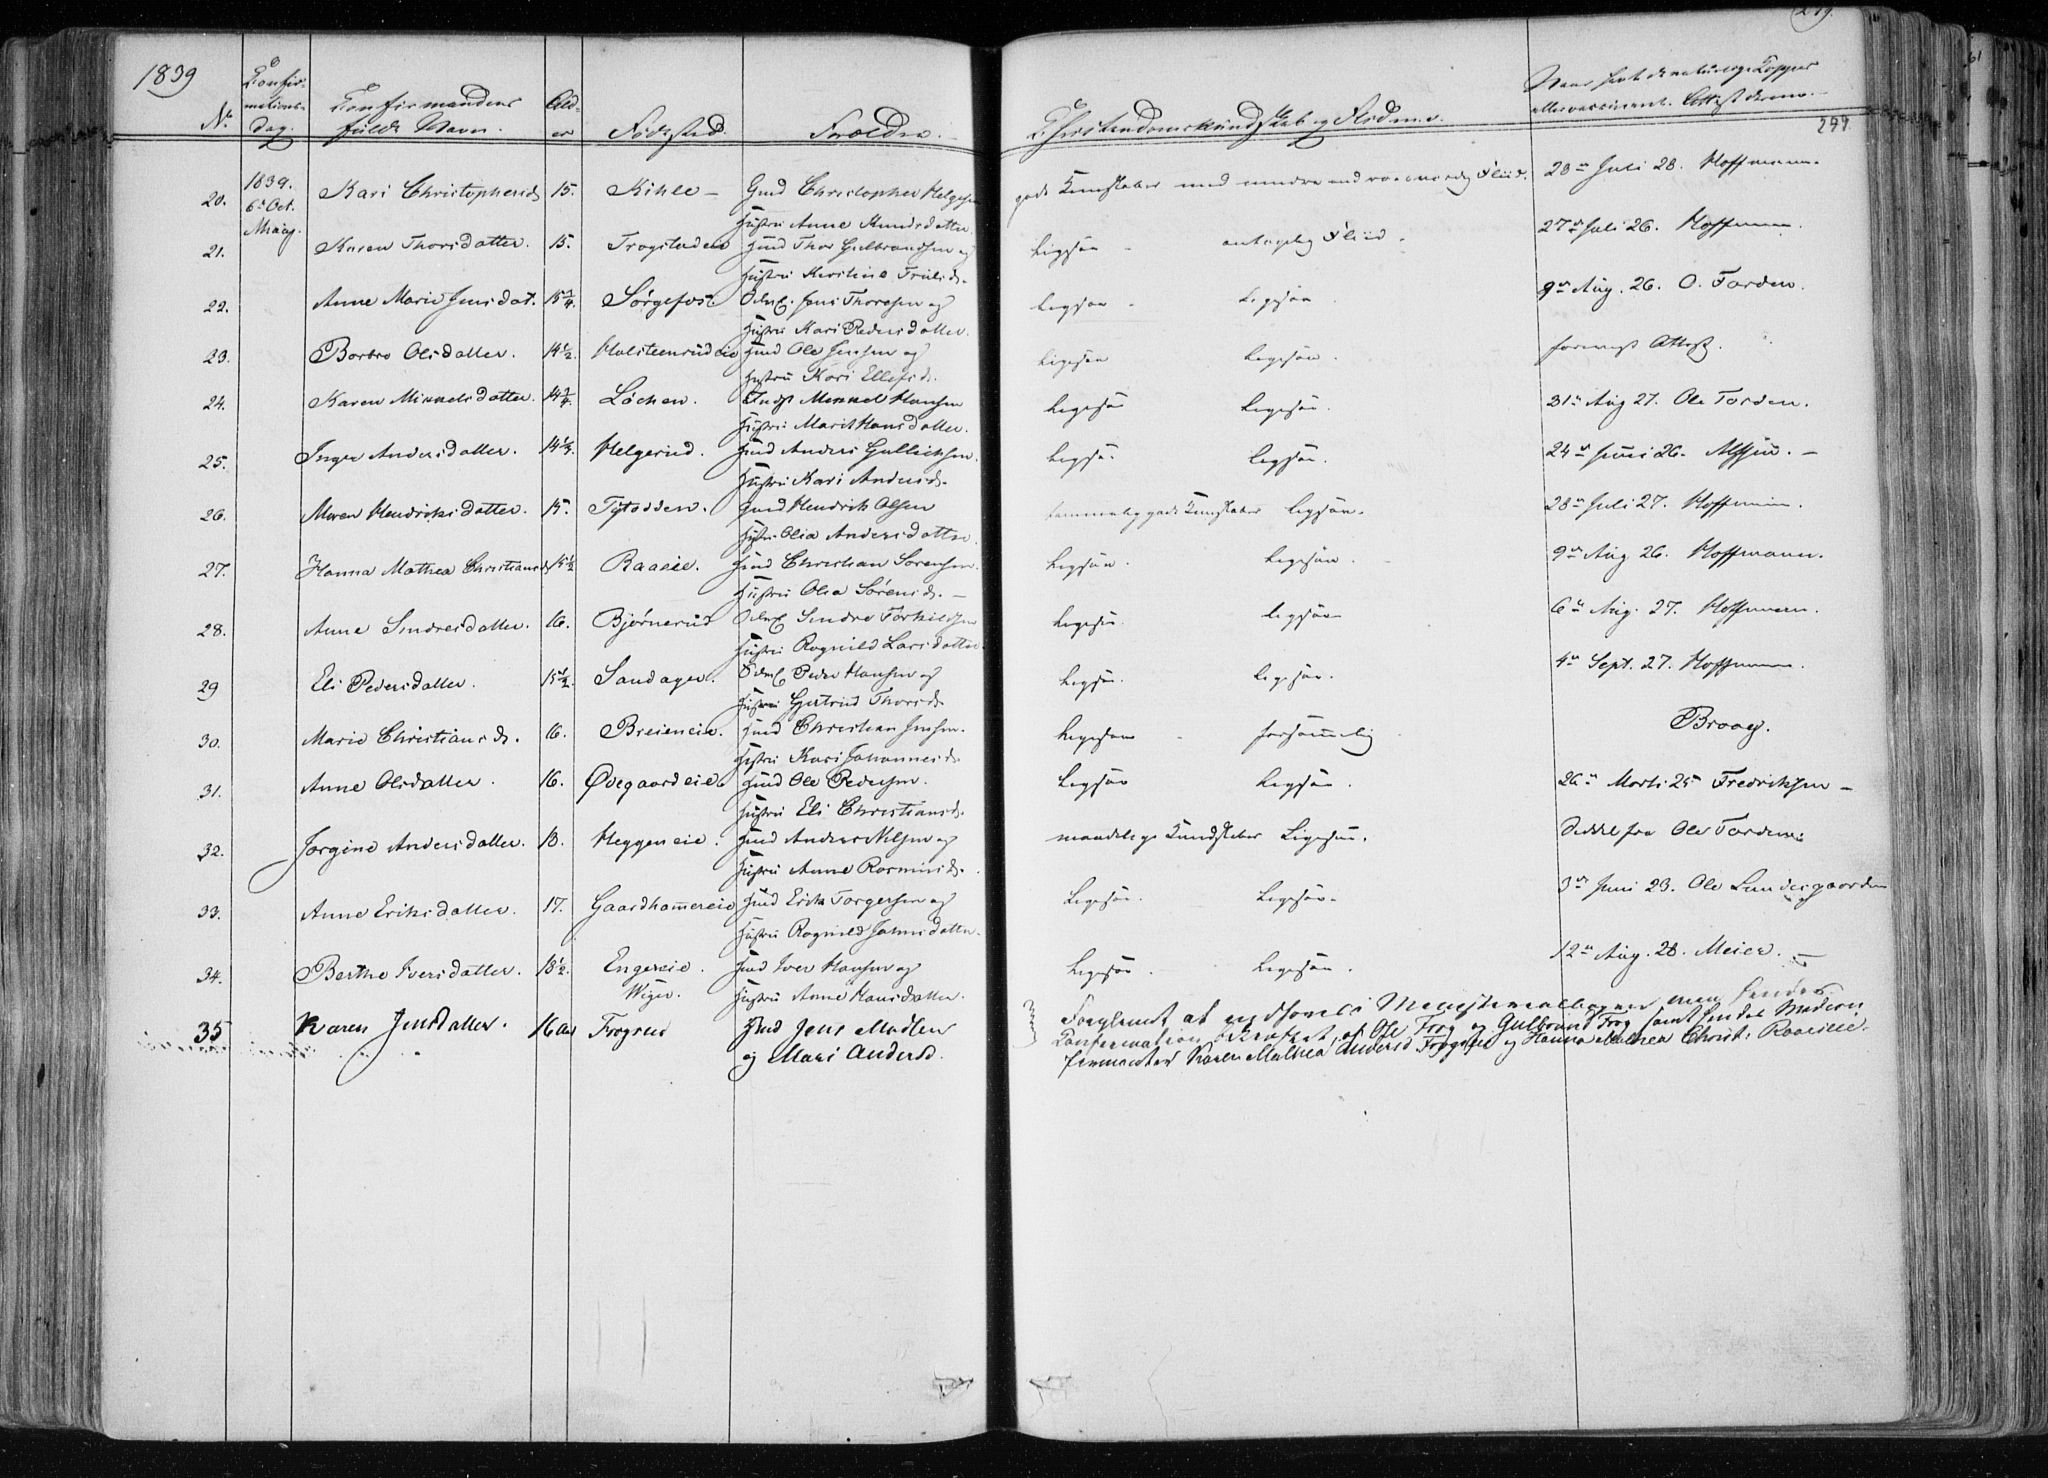 1839
Nr.
Confirmations-
dag.
Confirmandens
fulde Navn.
Ald-
er
Fødested.
Forældre.
Christendomskundskab og Flid m.v.
Naar havt de naturlige Kopper
eller vaccineret. Attest derom.
279.
20. 1839. 6te Oct. Kari Christophersd 15. Kihle – Gmd Christopher Helgesen
Hustru Anne Knudsdatter
gode Kundskaber med mindre Fliid. 28de Juli 28. Hoffmann.
21. Karen Thorsdatter. 15. Frogstadeie Hmd Thor Gulbrandsen og
Hustru Kirstine
Ligesaa antagelig Fliid. 27de Juli 26. Hoffmann.
22. Anne Marie Jensdat. 15 1/4. Sørgefost Jens Thoresen og
Hustru Kari Pedersdatter.
Ligesaa Ligesaa 9de Aug. 26. O. Torden.
23. Barbro Olsdatter. 14 1/2. Holsteenrudeie Hmd Ole Jensen og
Hustru Kari Ellefsd.
Ligesaa Ligesaa. forevist Attest.
24. Karen Mikkelsdatter. 14 3/4. Løchen. Mikkel Hansen
Hustru Marit Hansdatter.
Ligesaa Ligesaa. 31te Aug 27. Ole Torden.
25. Inger Andersdatter. 14 1/2. Helgerud. Gmd Anders Gulliksen.
Hustru Kari Andersd.
Ligesaa Ligesaa. 24de Juni 26.
26. Maren Hendriksdatter. 15. Tytodden. Gmd Hendrik Olsen
Hustru Olia Andersdatter
temmelig gode Kundskaber Ligesaa. 28de Juli 27. Hoffmann.
27. Hanna Mathea Christiansd 15 1/2 Raaeie. Hmd Christian Sørensen.
Hustru Olea Sørensd. –
Ligesaa. Ligesaa. 9de Aug 26. Hoffmann.
28. Anne Sindresdatter. 16. Bjørnerud Sindre Torkildsen
Hustru Ragnild Larsdatter
Ligesaa. Ligesaa 6te Aug. 27. Hoffmann.
29 Eli Pedersdatter. 15 1/2. Sandager. Peder Hansen og
Hustru Gjertrud Thorsd.
Ligesaa. Ligesaa. 4de Sept. 27. Hoffmann.
30. Marie Christiansd. 16. Breieneie. Hmd Christian Jensen.
Hustru Kari Johannesd.
Ligesaa forsømmelig Braag.
31. Anne Olsdatter. 16. Ødegaardeie Hmd Ole Pedersen.
Hustru Eli Christiansd.
Ligesaa Ligesaa. 26de Marts 25 Fredriksen –
32. Jørgine Andersdatter. 18. Heggeneie. Hmd Anders Nilsen og
Hustru Anne Rasmusd.
maadelige Kundskaber Ligesaa. Seddel fra Ole Torden
33. Anne Eriksdatter. 17. Gaardhammereie Hmd Erik Torgersen og
Hustru Ragnild Johnsdatter.
Ligesaa. Ligesaa. 3de Juni 23. Ole Lundesgaarden
34. Berthe Iversdatter. 18 1/2. Engereie. Hmd Iver Hansen og
Wiger. Hustru Anne Hansdatter.
Ligesaa. Ligesaa. 12te Aug. 28. Meier. –
35 Karen Jensdatter. 16 Aar Frogrud Hmd Jens Madsen
og Mari Andersd.
Forglemt at indføres i Ministerialbogen men hendes
Confirmation bekræftet af Ole Frog og Gulbrand Frog samt hendes Medcon-
firmanter Karen Mathea Andersd Frogeie og Hanna Mathea Christ: Raaeiee.